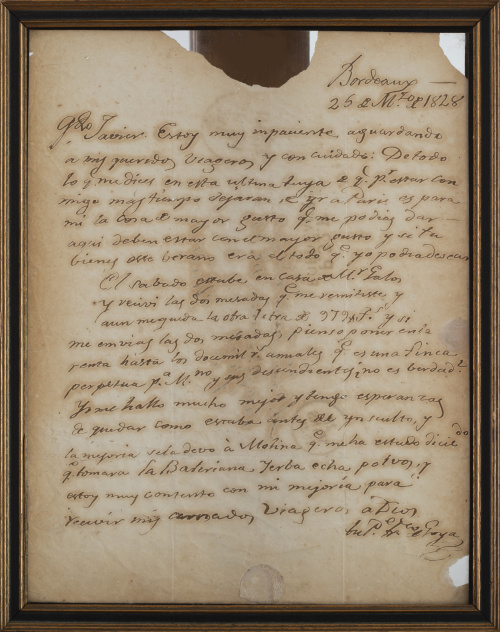 Bordeaux —
26 de Mzo de 1828
Qdo Javier. Estoy muy inpaciente aguardando
a mis queridos Viageros y con cuidado: De todo
lo q. me dices en esta ultima tuya de q.e pr. estar con
migo mas tiempo dejaran de yr a Paris es para
mi la cosa de mayor gusto q.e me podias dar —
aqui deben estar con el mayor gusto y si tu
bienes este berano era el todo q.e yo podia desear
El sabado estube en casa de Mr. Galos
y recivi las dos mesadas q.e me remitiste y
aun me queda la otra letra de 979 Fs. y si
me envias las dos mesadas, pienso poner en la
renta hasta los docemil rs. anuales q.e es una finca
perpetua pa. M.no y sus descendientes ¿no es berdad?
Yo me hallo mucho mejor y tengo esperanzas
de quedar como estaba antes del ynsulto, y
la mejoria se la devo à Molina q.e me ha estado dicien do
q.e tomara la Baleriana Yerba echa polvos, y
estoy muy contento con mi mejoria para
recivir mis amados Viageros a Dios
tu Pe. Frco. Goya